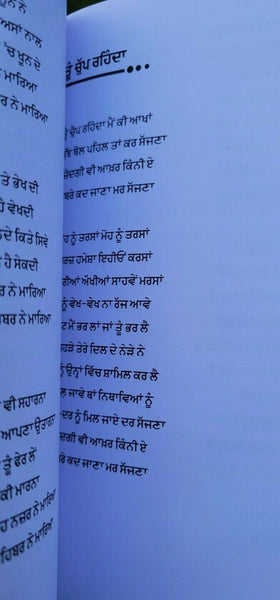 ਖ਼ੂਨ ਨੇ
ਅਸਾਂ ਨਾਲ
'ਚ ਖ਼ੂਨ ਦੇ
ਮਾਰਿਆ
ਨੇ ਮਾਰਿਆ
ਤੇ ਭੇਖ ਦੀ
ਹੈ ਵੇਖਦੀ
ਕਿਤੇ ਸਿਵੇ
ਹੈ ਸੇਕਦੀ
ਨੇ ਮਾਰਿਆ
ਨੇ ਮਾਰਿਆ
ਵੀ ਸਹਾਰਨਾ
ਆਪਣਾ ਉਤਾਰਨਾ
ਤੂੰ ਫੇਰ ਲੋਂ
ਕੀ ਮਾਰਨਾ
ਨਜ਼ਰ ਨੇ ਮਾਰਿਆ
ਨੇ ਮਾਰਿਆ
ਤੂੰ ਚੁੱਪ ਰਹਿੰਦਾ
ਚੁੱਪ ਰਹਿੰਦਾ ਮੈਂ ਕੀ ਆਖਾਂ
ਬੋਲ ਪਹਿਲ ਤਾਂ ਕਰ ਸੱਜਣਾ
ਵੀ ਆਖ਼ਰ ਕਿੰਨੀ ਏ
ਕਦ ਜਾਣਾ ਮਰ ਸੱਜਣਾ
ਨੂੰ ਤਰਸਾਂ ਮੋਹ ਨੂੰ ਤਰਸਾਂ
ਹਮੇਸ਼ਾ ਇਹੀਓਂ ਕਰਸਾਂ
ਅੱਖੀਆਂ ਸਾਹਵੇਂ ਮਰਸਾਂ
ਨੂੰ ਵੇਖ-ਵੇਖ ਨਾ ਰੱਜ ਆਵੇ
ਮੈਂ ਭਰ ਲਾਂ ਜਾਂ ਤੂੰ ਭਰ ਲੈ
ਤੇਰੇ ਦਿਲ ਦੇ ਨੇੜੇ ਨੇ
ਉਨ੍ਹਾਂ ਵਿੱਚ ਸ਼ਾਮਿਲ ਕਰ ਲੈ
ਜਾਵੇ ਥਾਂ ਨਿਥਾਵਿਆਂ ਨੂੰ
ਨੂੰ ਮਿਲ ਜਾਏ ਦਰ ਸੱਜਣਾ
ਵੀ ਆਖ਼ਰ ਕਿੰਨੀ ਏ
ਕਦ ਜਾਣਾ ਮਰ ਸੱਜਣਾ